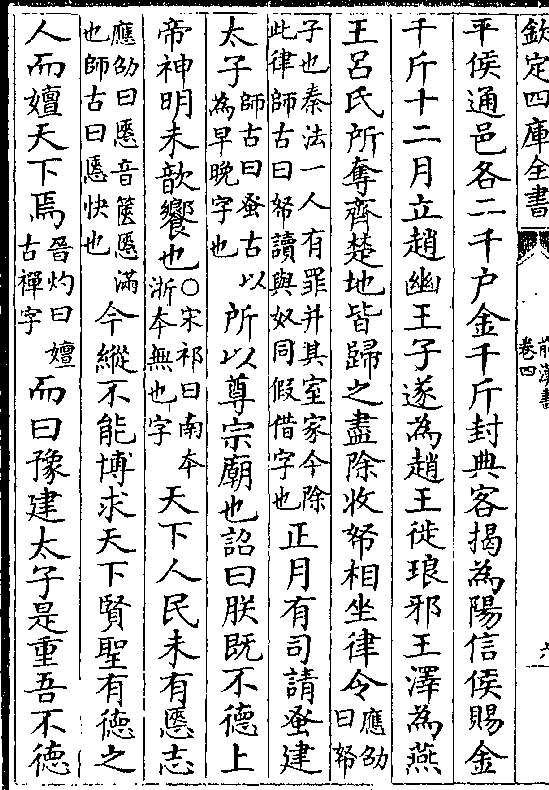 欽定四庫全書
前漢書
卷四
六
平侯通邑各二千户金千斤封典客揭為陽信侯賜金
千斤十二月立趙幽王子遂為趙王徙琅邪王澤為燕
王呂氏所奪齊楚地皆歸之盡除收帑相坐律令應劭曰帑
子也秦法一人有罪并其室家今除此律師古曰帑讀與奴同假借字也正月有司請蚤建
太子師古曰蚤古以為早晚字也所以尊宗廟也詔曰朕既不德上
帝神明未歆饗也○宋祁曰南本浙本無也字天下人民未有㥦志
應劭曰㥦音篋㥦滿也師古曰㥦快也今縱不能博求天下賢聖有德之
人而嬗天下焉晉灼曰嬗古禪字而曰豫建太子是重吾不德